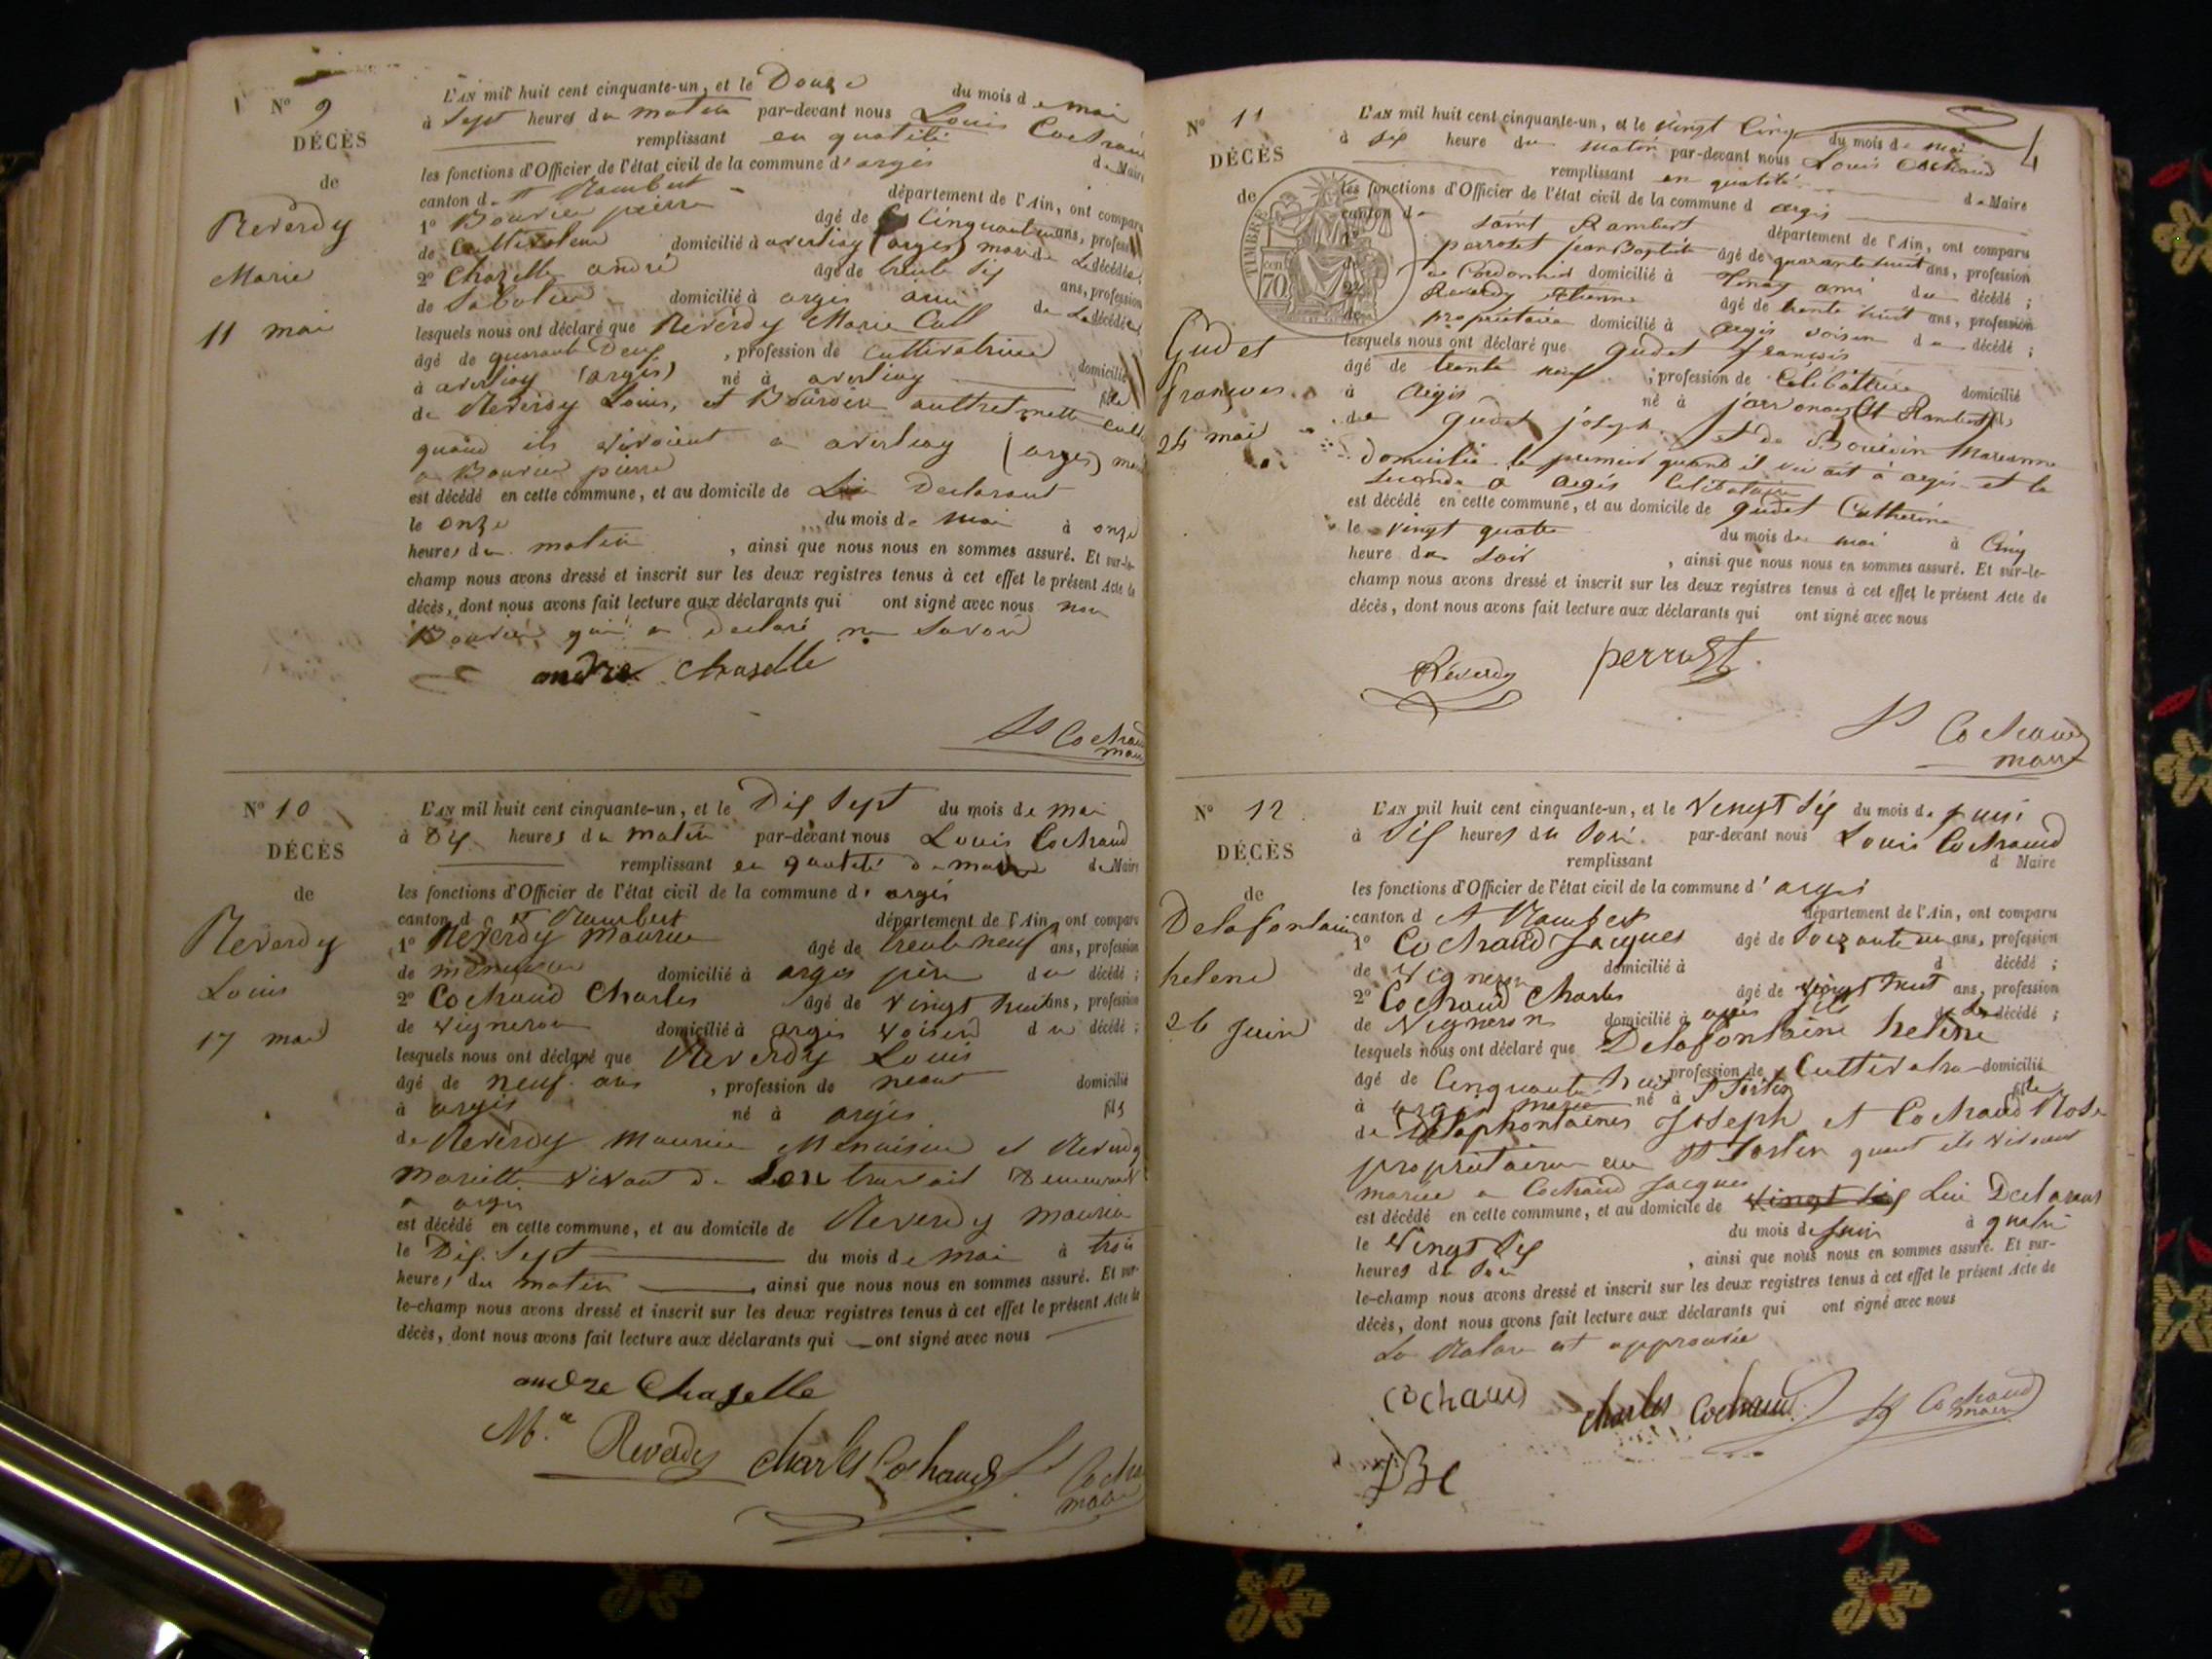 N° 9
DÉCÈS
de
Reverdy
Marie
11 mai
L'AN mil huit cent cinquante-un, et le Douze du mois de mai
à Sept heures du matin par-devant nous Louis Cochaud
remplissant en qualité de Maire
les fonctions d'Officier de l'état civil de la commune d'argis
canton de St Rambert département de l'Ain, ont comparu
1° Bouvier pierre âgé de Cinquante ans, profession
de Cultivateur domicilié à averliay (argis) mari de La décédée
2° Chazelle andré âgé de trente six ans, profession
de Sabotier domicilié à argis ami de La décédée
lesquels nous ont déclaré que Reverdy Marie Cult
âgé de quarante Deux, profession de Cultivatrice domicilié
à averliay (argis) né à averliay fille
de Reverdy Louis, et Bourdin
quand ils vivoient a averliay (argis)
a Bouvier pierre
est décédé en cette commune, et au domicile de Lui Declarant
le onze du mois de mai à onze
heures du matin, ainsi que nous nous en sommes assuré. Et sur-le-
champ nous avons dressé et inscrit sur les deux registres tenus à cet effet le présent Acte de
décès, dont nous avons fait lecture aux déclarants qui ont signé avec nous non
Bouvier qui a declaré ne Savoir
andré Chaselle
Ls Cochaud
maire
N° 10
DÉCÈS
de
Reverdy
Louis
17 mai
L'AN mil huit cent cinquante-un, et le Dix Sept du mois de mai
à Dix heures du matin par-devant nous Louis Cochaud
remplissant en qualité de maire de Maire
les fonctions d'Officier de l'état civil de la commune d'argis
canton d St Rambert département de l'Ain, ont comparu
1° Reverdy maurice âgé de trente neuf ans, profession
de menuisier domicilié à argis père du décédé ;
2° Cochaud Charles âgé de vingt huit ans, profession
de vigneron domicilié à argis voisin du décédé ;
lesquels nous ont déclaré que Reverdy Louis
âgé de neuf ans, profession de neant domicilié
à argis né à argis fils
de Reverdy Maurice Menuisier et Reverdy
Mariette vivant de Son travail Demeurant
a argis
est décédé en cette commune, et au domicile de Reverdy maurice
le Dix Sept du mois de mai à trois
heures du matin, ainsi que nous nous en sommes assuré. Et sur-
le-champ nous avons dressé et inscrit sur les deux registres tenus à cet effet le présent Acte de
décès, dont nous avons fait lecture aux déclarants qui ont signé avec nous
andre Chaselle
M.ce Reverdy Charles Cochaud Ls Cochaud
maire
4
N° 11
DÉCÈS
de
Gudet
françois
24 mai
TIMBRE
70
L'AN mil huit cent cinquante-un, et le vingt Cinq du mois de mai
à six heure du matin par-devant nous Louis Cochaud
remplissant en qualité de Maire
les fonctions d'Officier de l'état civil de la commune d argis
canton de Saint Rambert département de l'Ain, ont comparu
perrotet jean Baptiste âgé de quarante huit ans, profession
de Cordonnier domicilié à Tenay ami du décédé ;
Reverdy Etienne âgé de trente huit ans, profession
propriétaire domicilié à argis voisin du décédé ;
lesquels nous ont déclaré que gudet françois
âgé de trente neuf, profession de domicilié
à argis né à (St Rambert) fils
de gudet joseph et de Bouvier Marianne
Domicilié le premier quand il vivait à argis et la
Seconde a argis Celibataire
est décédé en cette commune, et au domicile de gudet Catherine
le vingt quatre du mois de mai à Cinq
heure du Soir, ainsi que nous nous en sommes assuré. Et sur-le-
champ nous avons dressé et inscrit sur les deux registres tenus à cet effet le présent Acte de
décès, dont nous avons fait lecture aux déclarants qui ont signé avec nous
Reverdy
Ls Cochaud
maire
N° 12
DÉCÈS
de
Delafontaine
helene
26 Juin
L'AN mil huit cent cinquante-un, et le vingt Six du mois de juin
à Six heures du Soir par-devant nous Louis Cochaud
remplissant d Maire
les fonctions d'Officier de l'état civil de la commune d'argis
canton d St Rambert département de l'Ain, ont comparu
1° Cochaud Jacques âgé de Soixante un ans, profession
de Vigneron domicilié à d décédé ;
2° Cochaud Charles âgé de vingt huit ans, profession
de Vigneron domicilié à argis fils de la décédé ;
lesquels nous ont déclaré que Delafontaine helene
âgé de Cinquante huit, profession de Cultivatrice domicilié
à argis né à St Sorlin fille
de Delaphontaines Joseph et Cochaud Rose
propriétaires au St Sorlin quant ils vivoient
mariée a Cochaud Jacques
est décédé en cette commune, et au domicile de vingt six Lui Declarant
le vingt Six du mois de Juin à quatre
heures du Soir, ainsi que nous nous en sommes assuré. Et sur-
le-champ nous avons dressé et inscrit sur les deux registres tenus à cet effet le présent Acte de
décès, dont nous avons fait lecture aux déclarants qui ont signé avec nous
La Rature est approuvée
Cochaud Charles Cochaud Ls Cochaud
maire